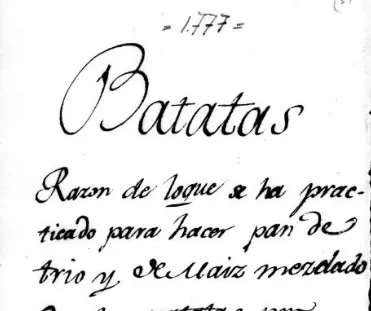 = 1.777 =
Batatas
Razon de loque se ha prac-
ticado para hacer pan de
trio y de Maiz mezclado